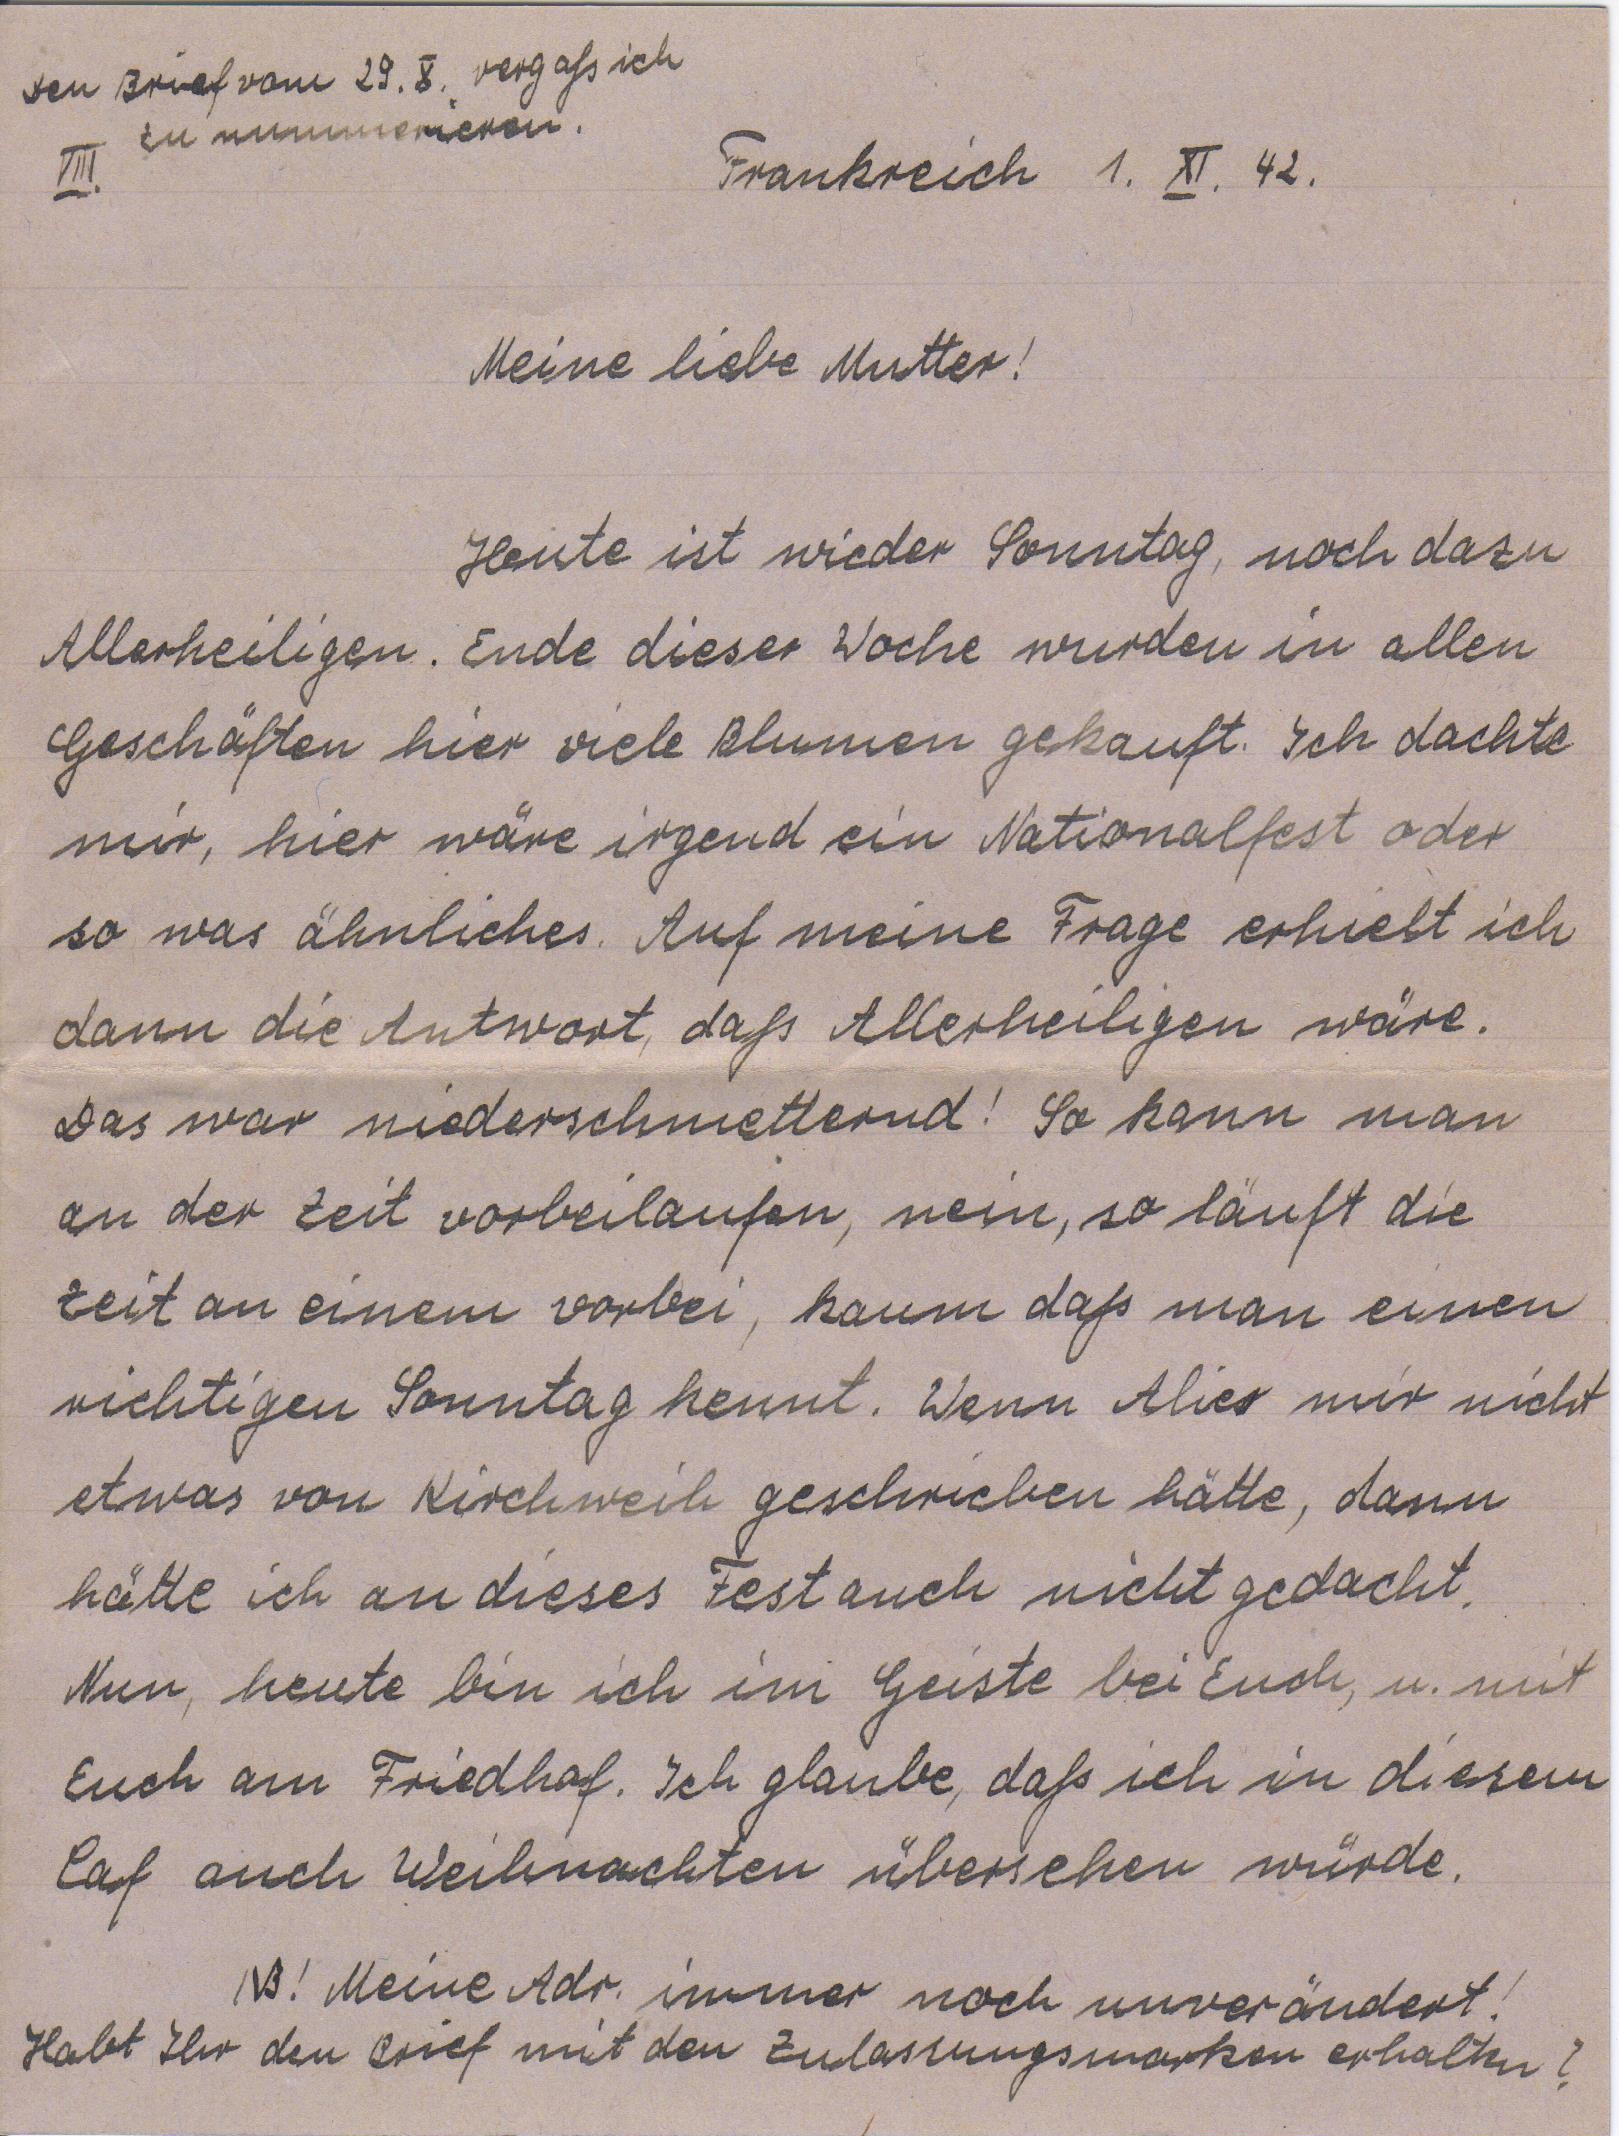 Den Brief vom 29. X. vergaß ich
zu nummerieren.
VIII.
Frankreich 1. XI. 42.
Meine liebe Mutter!
Heute ist wieder Sonntag, noch dazu
Allerheiligen. Ende dieser Woche wurden in allen
Geschäften hier viele Blumen gekauft. Ich dachte
mir, hier wäre irgend ein Nationalfest oder
so was ähnliches. Auf meine Frage erhielt ich
dann die Antwort, daß Allerheiligen wäre.
Das war niederschmetternd! So kann man
an der Zeit vorbeilaufen, nein, so läuft die
Zeit an einem vorbei, kaum daß man einen
richtigen Sonntag kennt. Wenn mir nicht
etwas von Kirchweih geschrieben hätte, dann
hätte ich an dieses Fest auch nicht gedacht.
Nun, heute bin ich im Geiste bei Euch, u. mit
Euch am Friedhof. Ich glaube, daß ich in diesem
Caf auch Weihnachten übersehen würde.
NB! Meine Adr. immer noch unverändert!
Habt Ihr den Brief mit den Zulassungsmarken erhalten?